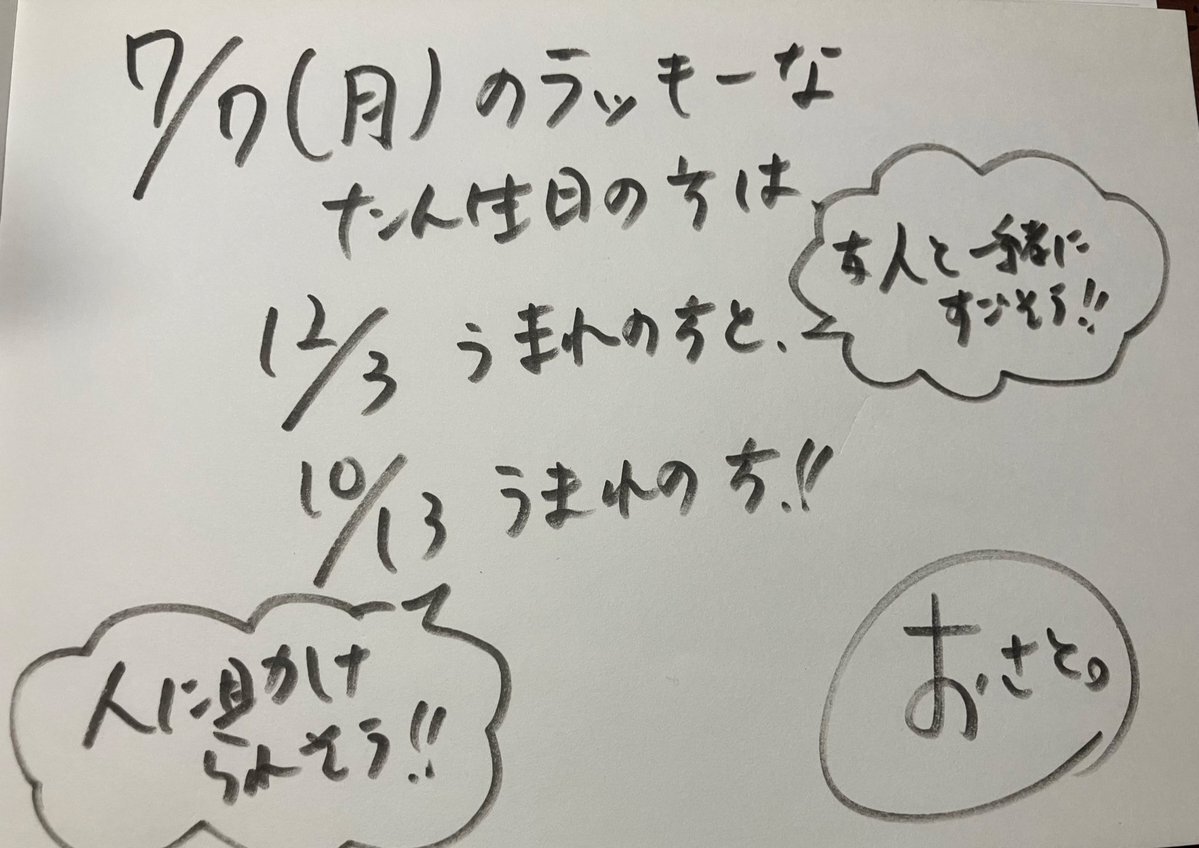 7/7(月)のラッキーな
たん生日の方は
12/3 うまれの方と、
友人と一緒に
すごそう!!
10/13 うまれの方!!
人に見かけ
られそう!!
おさと。